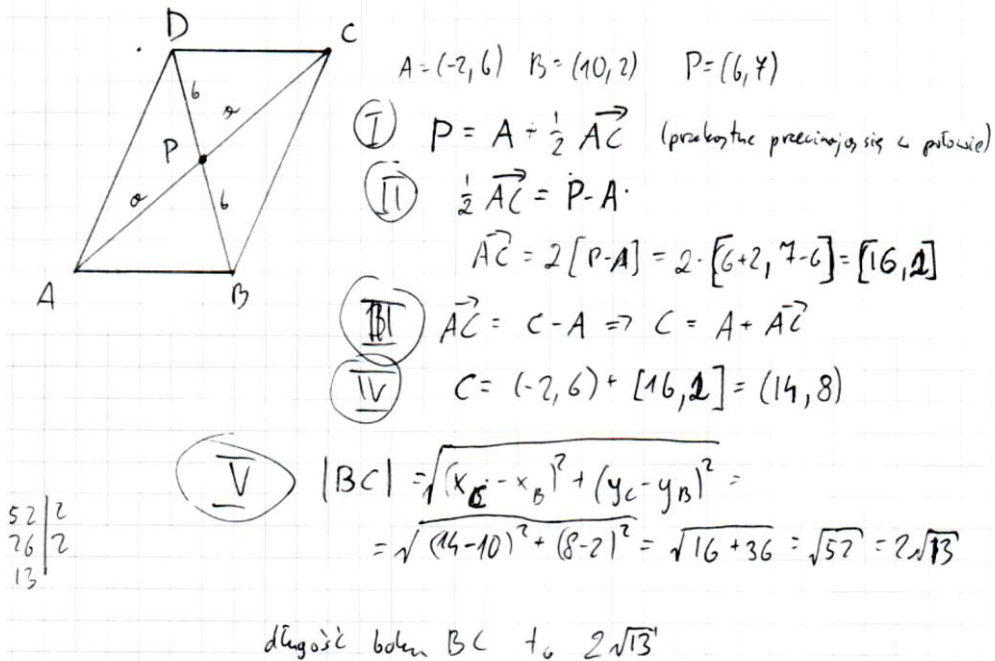 D C
A = (-2, 6) B = (10, 2) P = (6, 7)
b a
P
a b
A B
I P = A + ½ AC→ (przekątne przecinają się w połowie)
II ½ AC→ = P - A
AC→ = 2 [P-A] = 2 · [6+2, 7-6] = [16, 2]
III AC→ = C - A => C = A + AC→
IV C = (-2, 6) + [16, 2] = (14, 8)
V |BC| = √((x_C - x_B)² + (y_C - y_B)²) =
= √((14-10)² + (8-2)²) = √(16 + 36) = √52 = 2√13
52 | 2
26 | 2
13 |
długość boku BC to 2√13